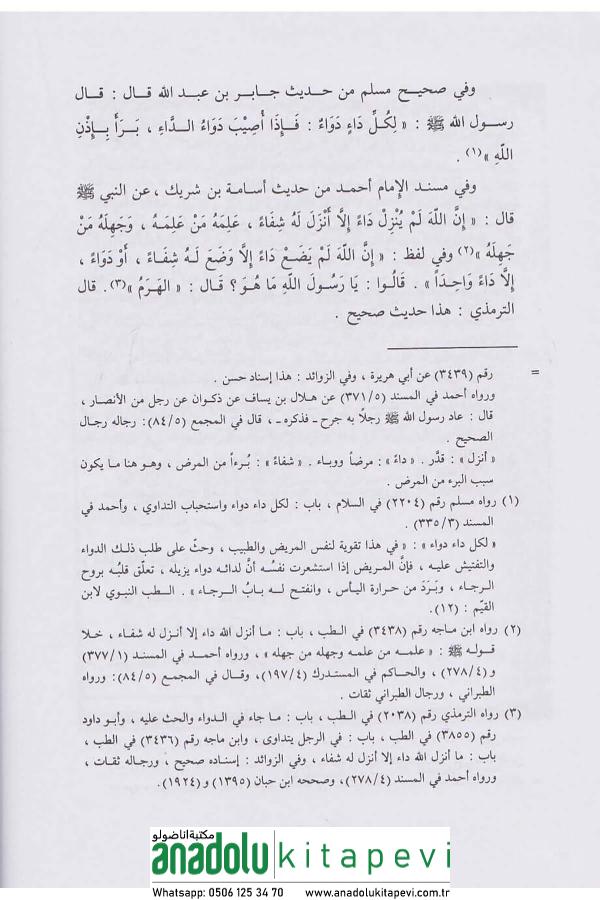 وفي صحيح مسلم من حديث جابر بن عبد الله قال : قال
رسول الله ﷺ : « لِكُلِّ دَاءٍ دَوَاءٌ : فَإِذَا أُصِيْبَ دَوَاءُ الدَّاءِ ، بَرَأَ بِإِذْنِ
اللَّهِ »(١) .
وفي مسند الإمام أحمد من حديث أسامة بن شريك ، عن النبي ﷺ
قال : « إِنَّ اللَّهَ لَمْ يُنْزِلْ دَاءً إِلَّا أَنْزَلَ لَهُ شِفَاءً ، عَلِمَهُ مَنْ عَلِمَهُ ، وَجَهِلَهُ مَنْ
جَهِلَهُ »(٢) وفي لفظ : « إِنَّ اللَّهَ لَمْ يَضَعْ دَاءً إِلَّا وَضَعَ لَهُ شِفَاءً ، أَوْ دَوَاءً ،
إِلَّا دَاءً وَاحِداً » . قَالُوا : يَا رَسُولَ اللَّهِ مَا هُوَ ؟ قَالَ : « الهَرَمُ »(٣) . قال
الترمذي : هذا حديث صحيح .
= رقم (٣٤٣٩) عن أبي هريرة ، وفي الزوائد : هذا إسناد حسن .
ورواه أحمد في المسند (٣٧١/٥) عن هلال بن يساف عن ذكوان عن رجل من الأنصار ،
قال : عاد رسول الله ﷺ رجلًا به جرح ـ فذكره ـ ، قال في المجمع (٨٤/٥): رجاله رجال
الصحيح .
« أنزل » : قدَّر . « داءً » : مرضاً ووباء . « شفاءً » : بُرءاً من المرض ، وهو هنا ما يكون
سبب البرء من المرض .
(١) رواه مسلم رقم (٢٢٠٤) في السلام ، باب : لكل داء دواء واستحباب التداوي ، وأحمد في
المسند (٣٣٥/٣) .
« لكل داء دواء » : « في هذا تقوية لنفس المريض والطبيب ، وحثّ على طلب ذلك الدواء
والتفتيش عليه ، فإنَّ المريض إذا استشعرت نفسُه أنَّ لدائه دواء يزيله ، تعلّق قلبُه بروح
الرجاء ، وبَرَدَ من حرارة اليأس ، وانفتح له بابُ الرجاء » . الطب النبوي لابن
القيّم : (١٢).
(٢) رواه ابن ماجه رقم (٣٤٣٨) في الطب ، باب : ما أنزل الله داء إلا أنزل له شفاء ، خلا
قوله ﷺ : « علمه من علمه وجهله من جهله » ، ورواه أحمد في المسند (٣٧٧/١)
و(٢٧٨/٤) ، والحاكم في المستدرك (١٩٧/٤)، وقال في المجمع (٨٤/٥): ورواه
الطبراني ، ورجال الطبراني ثقات .
(٣) رواه الترمذي رقم (٢٠٣٨) في الطب ، باب : ما جاء في الدواء والحث عليه ، وأبو داود
رقم (٣٨٥٥) في الطب ، باب : في الرجل يتداوى ، وابن ماجه رقم (٣٤٣٦) في الطب ،
باب : ما أنزل الله داء إلا أنزل له شفاء ، وفي الزوائد : إسناده صحيح ، ورجاله ثقات ،
ورواه أحمد في المسند (٢٧٨/٤)، وصححه ابن حبان (١٣٩٥) و(١٩٢٤).
مكتبة اناضولو
anadolu kitapevi
Whatsapp: 0506 125 34 70 www.anadolukitapevi.com.tr